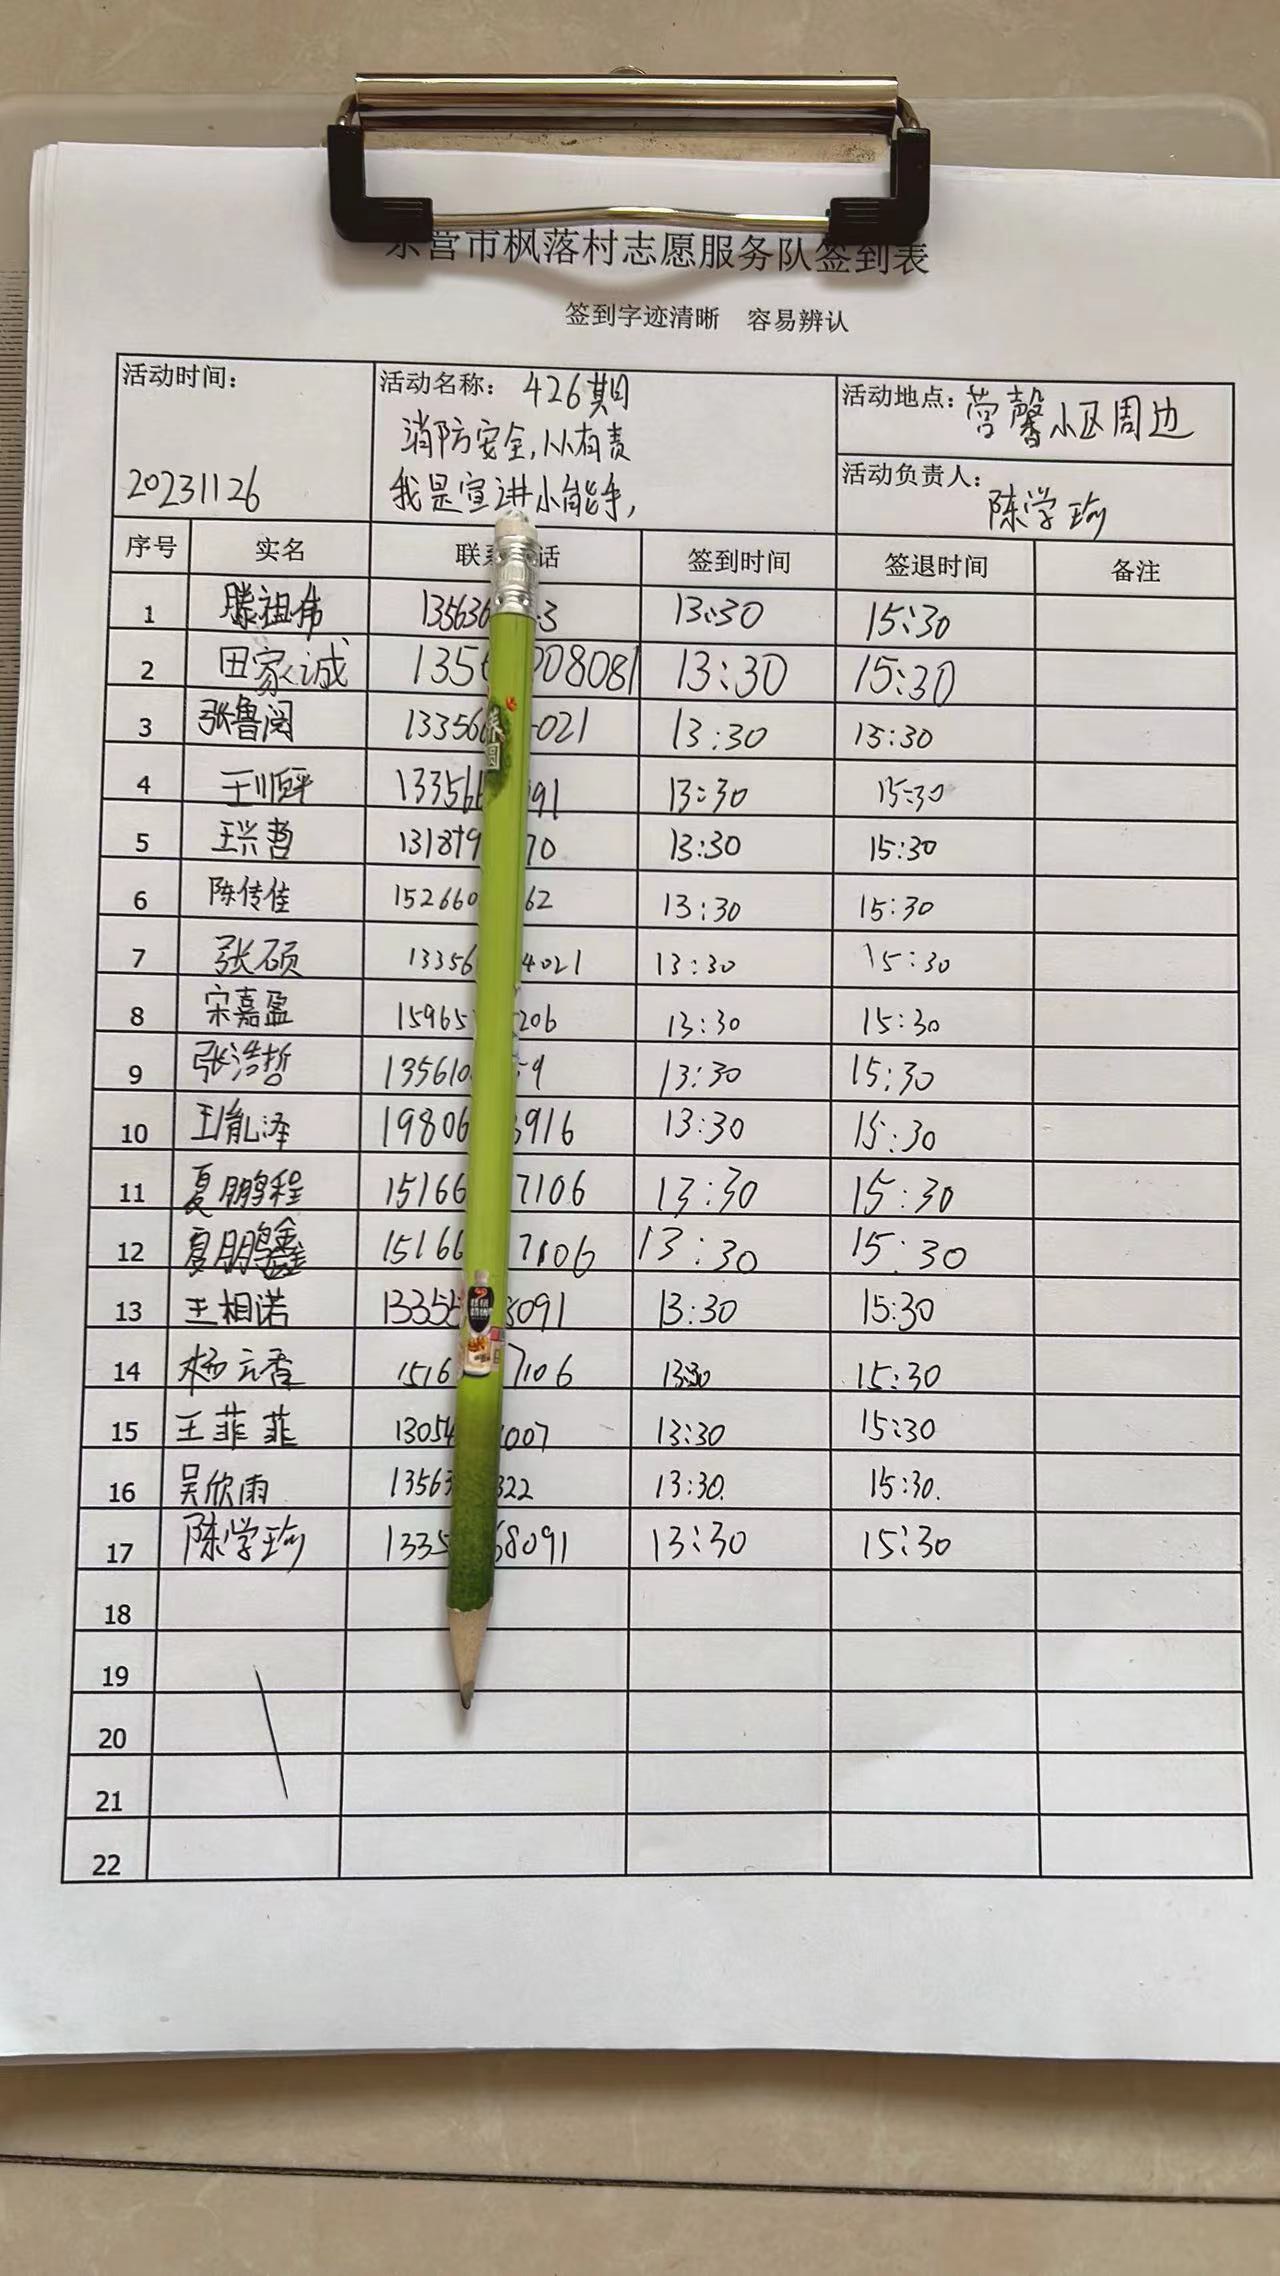 东营市枫落村志愿服务队签到表
签到字迹清晰 容易辨认
活动时间： 20231126
活动名称： 426期
消防安全,从有责
我是宣讲小能手,
活动地点： 营馨小区周边
活动负责人： 陈学瑜
序号 实名 联系 话 签到时间 签退时间 备注
1 滕祖伟 13563 3 13:30 15:30
2 田家诚 135 08081 13:30 15:30
3 张鲁闵 13356 021 13:30 15:30
4 王顺坪 13356 91 13:30 15:30
5 王兴哲 131879 70 13:30 15:30
6 陈传佳 152660 62 13:30 15:30
7 张硕 13356 4021 13:30 15:30
8 宋嘉盈 15965 206 13:30 15:30
9 张浩哲 135610 59 13:30 15:30
10 王胤泽 19806 3916 13:30 15:30
11 夏鹏程 15166 7106 13:30 15:30
12 夏鹏鑫 15166 7106 13:30 15:30
13 王相诺 1335 8091 13:30 15:30
14 杨云香 1516 7106 13:30 15:30
15 王菲菲 13054 1007 13:30 15:30
16 吴欣雨 13563 322 13:30. 15:30.
17 陈学瑜 1335 68091 13:30 15:30
18
19
20
21
22